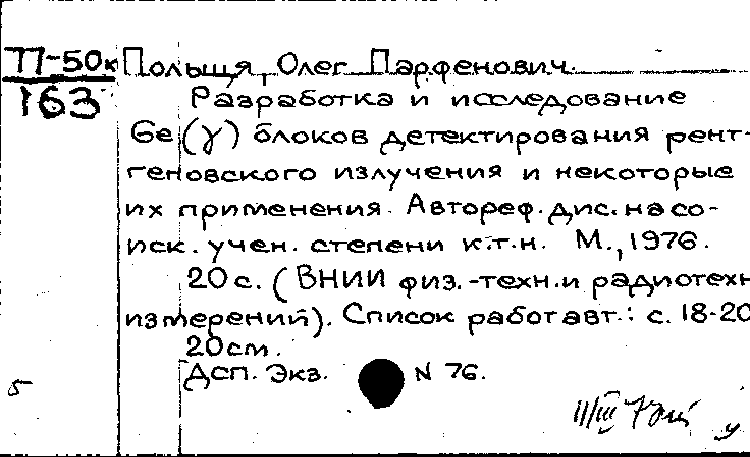 П-50к Польщя, Олег Парфенович.
163 Разработка и исследование
Ge(γ) блоков детектирования рент-
геновского излучения и некоторые
их применения. Автореф. дис. на со-
иск. учен. степени к.т.н. М., 1976.
20 с. (ВНИИ физ.-техн. и радиотехн
измерений). Список работ авт.: с. 18-20
20 см.
Дсп. Экз. N 76.
5